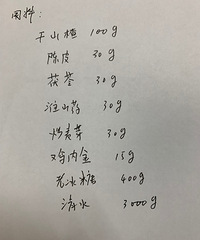 用料：
干山楂 100g
陈皮 30g
茯苓 30g
淮山药 30g
炒麦芽 30g
鸡内金 15g
老冰糖 400g
清水 3000g